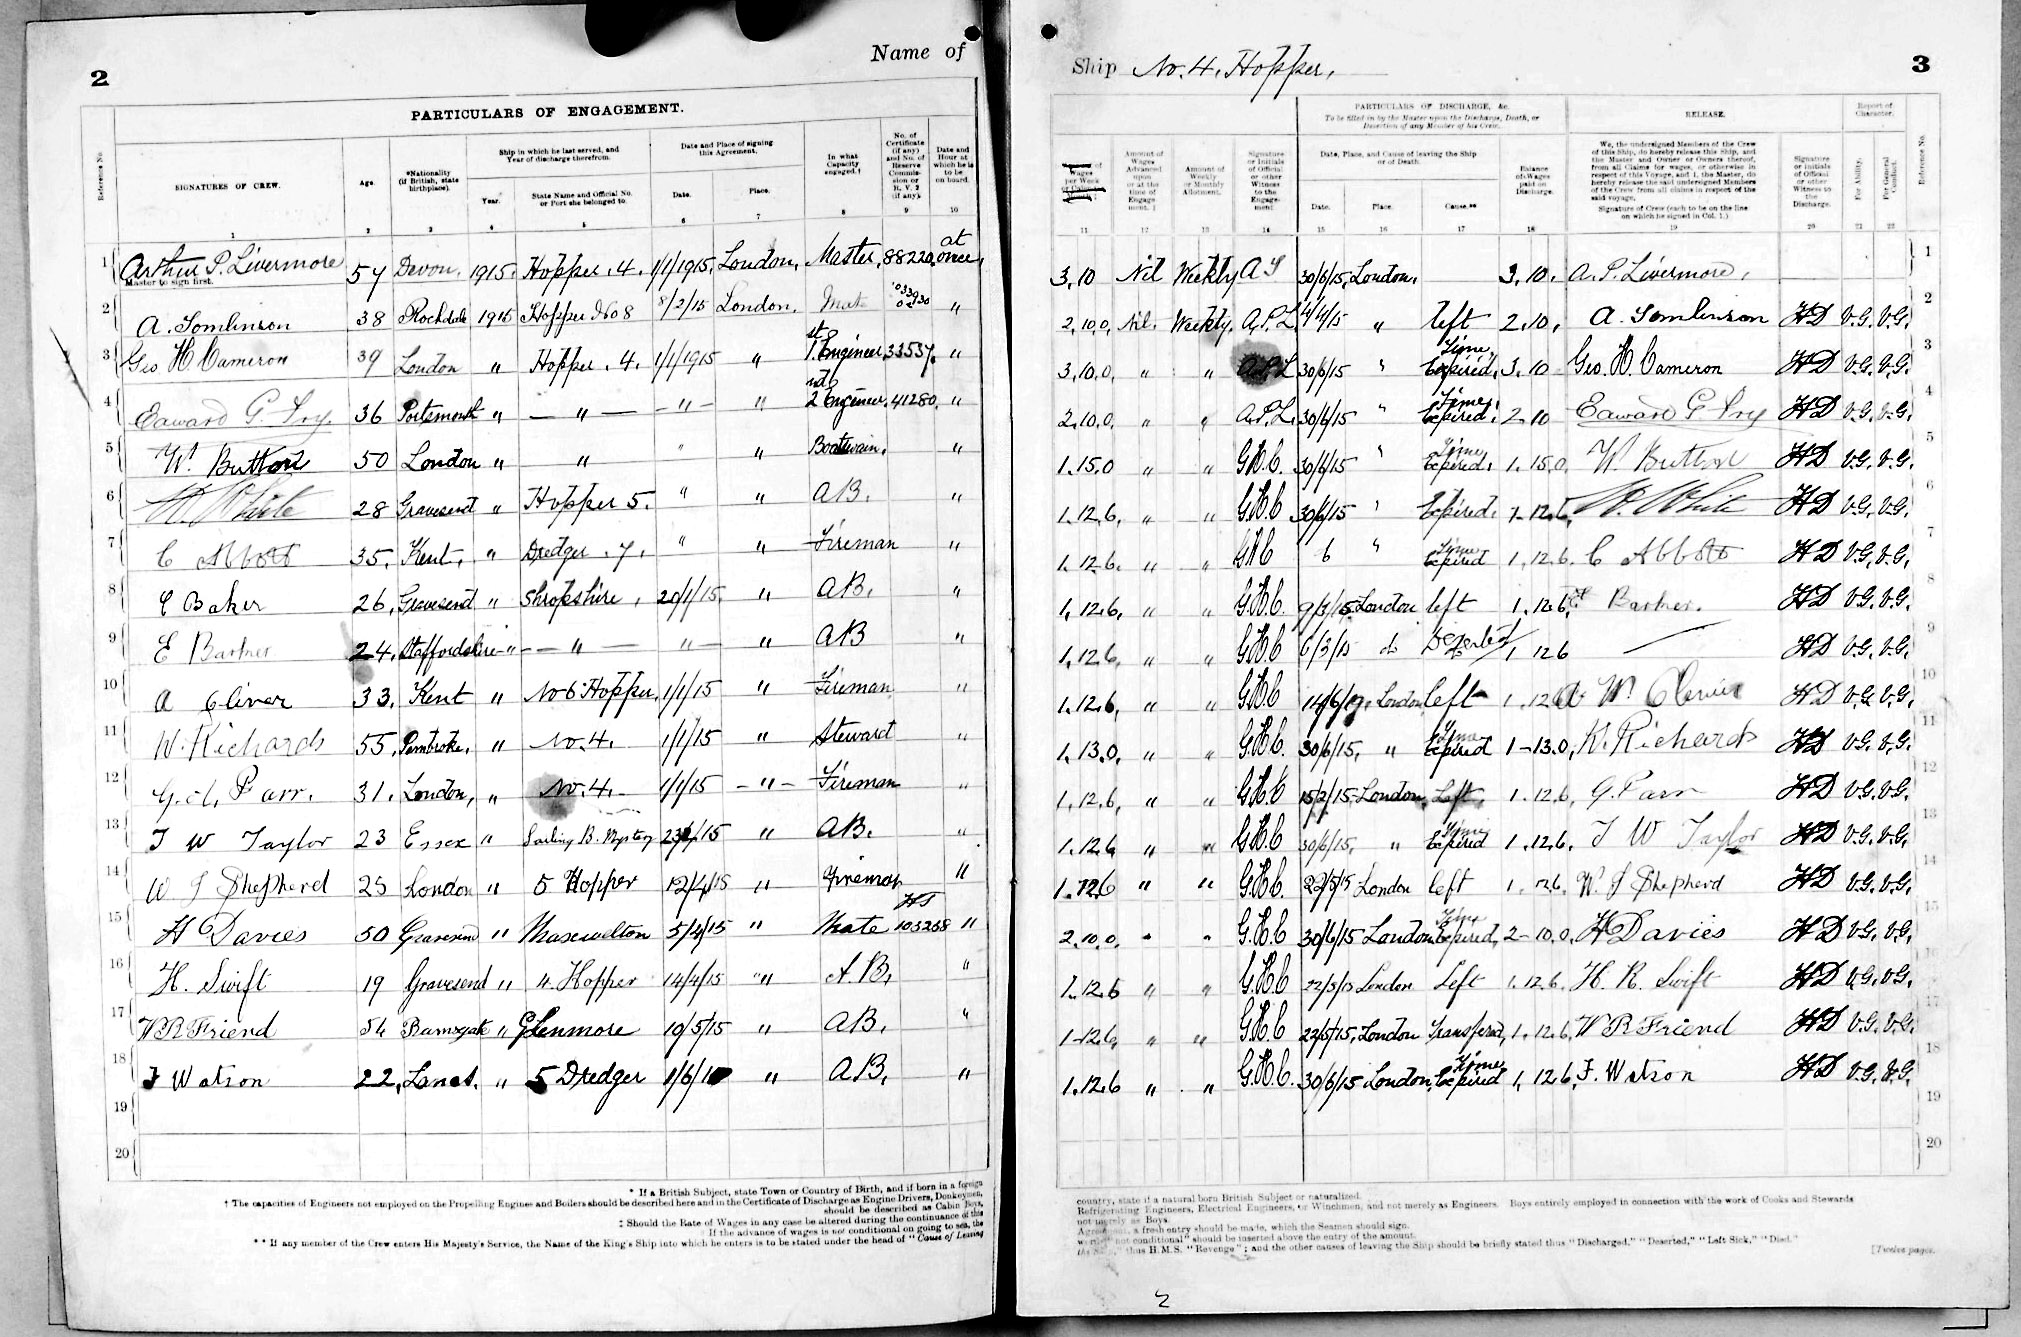 2
Name of
PARTICULARS OF ENGAGEMENT.
Reference No.
SIGNATURES OF CREW.
Age.
*Nationality (if British, state birthplace).
Ship in which he last served, and Year of discharge therefrom.
Year.
State Name and Official No. or Port she belonged to.
Date and Place of signing this Agreement.
Date.
Place.
In what Capacity engaged.†
No. of Certificate (if any) and No. of Reserve Commission or R.V.2 (if any).
Date and Hour at which he is to be on board.
1 2 3 4 5 6 7 8 9 10
1 Arthur P. Livermore 57 Devon. 1915. Hopper. 4. 1/1/1915. London. Master. 88220. at once.
Master to sign first.
2 A. Tomlinson 38 Rochdale 1915 Hopper No 8 8/2/15 London. Mate "
3 Geo H Cameron 39 London " Hopper. 4. 1/1/1915 " 1st Engineer. 33557. "
4 Edward G. 36 Portsmouth " — " — - " - " 2nd Engineer. 41280. "
5 W. Button 50 London " " " " Boatswain. "
6 W. White 28 Gravesend " Hopper 5. " " AB. "
7 C Abbott 35. Kent. " Dredger. 7. " " Fireman "
8 C Baker 26. Gravesend " Shropshire. 20/1/15. " AB. "
9 E Barker 24. Staffordshire " — " — " — " AB "
10 A Oliver 33. Kent " No 6 Hopper. 1/1/15 " Fireman "
11 W. Richards 55. Pembroke. " No. 4. 1/1/15 " Steward "
12 Parr. 31. London, " No. 4. 1/1/15 - " - Fireman "
13 T W Taylor 23 Essex " Sailing B. Mystery /15 " AB. "
14 W J Shepherd 25 London " 5 Hopper 12/4/15 " Fireman "
15 H Davies 50 Gravesend " 5/4/15 " Mate 103268 "
16 H. Swift 19 Gravesend " 4. Hopper 14/4/15 " A.B. "
17 W R Friend 54 Ramsgate " Glenmore 19/5/15 " AB. "
18 F Watson 22. Lancs. " 5 Dredger 1/6/15 " AB. "
19
20
* If a British Subject, state Town or Country of Birth, and if born in a foreign
† The capacities of Engineers not employed on the Propelling Engines and Boilers should be described here and in the Certificate of Discharge as Engine Drivers, Donkeymen,
should be described as Cabin Boys,
‡ Should the Rate of Wages in any case be altered during the continuance of this
If the advance of wages is not conditional on going to sea, the
** If any member of the Crew enters His Majesty's Service, the Name of the King's Ship into which he enters is to be stated under the head of "Cause of Leaving
Ship No. 4. Hopper.
3
PARTICULARS OF DISCHARGE, &c.
To be filled in by the Master upon the Discharge, Death, or Desertion of any Member of his Crew.
RELEASE.
Report of Character.
Amount of Wages Advanced upon or at the time of Engagement.‡
Amount of Weekly or Monthly Allotment.
Signature or Initials of Official or other Witness to the Engagement
Date, Place, and Cause of leaving the Ship or of Death.
Date.
Place.
Cause.**
Balance of Wages paid on Discharge.
We, the undersigned Members of the Crew of this Ship, do hereby release this Ship, and the Master and Owner or Owners thereof, from all Claims for wages, or otherwise in respect of this Voyage, and I, the Master, do hereby release the said undersigned Members of the Crew from all claims in respect of the said voyage.
Signature of Crew (each to be on the line on which he signed in Col. 1.)
Signature or Initials of Official or other Witness to the Discharge.
For Ability.
For General Conduct.
Reference No.
11 12 13 14 15 16 17 18 19 20 21 22
3.10 Nil Weekly 30/6/15. London. 3.10. A. P. Livermore. 1
2.10.0. Nil. Weekly. A.P.L. 4/4/15 " left 2.10. A. Tomlinson HD V.G. V.G. 2
3.10.0. " " A.P.L 30/6/15 " Time Expired. 3.10 Geo. H. Cameron HD V.G. V.G. 3
2.10.0. " " A.P.L. 30/6/15 " Time Expired. 2-10 Edward G. HD V.G. V.G. 4
1.15.0 " " G.H.C. 30/6/15 " Time Expired. 1.15.0. W. Button HD V.G. V.G. 5
1.12.6. " " G.H.C 30/6/15 " Expired. 1-12.6. W. White HD V.G. V.G. 6
1.12.6. " " GHC 6 " Time Expired 1.12.6. C Abbott HD V.G. V.G. 7
1.12.6. " " G.H.C. London left 1.12.6. Barker. HD V.G. V.G. 8
1.12.6. " " G.H.C 6/3/15 do Deserted 1 12 6 — HD V.G. V.G. 9
1.12.6. " " G.H.C London left 1.12.6 HD V.G. V.G. 10
1.13.0. " " G.H.C. 30/6/15. " Time Expired 1-13.0. W. Richards HD V.G. V.G. 11
1.12.6. " " G.H.C 15/2/15 London. Left. 1.12.6. G. Parr HD V.G. V.G. 12
1.12.6 " " G.H.C 30/6/15. " Time Expired 1.12.6. T W Taylor HD V.G. V.G. 13
1.12.6 " " G.H.C. 22/5/15 London left 1.12.6. W. J Shepherd HD V.G. V.G. 14
2.10.0. " " G.H.C 30/6/15 London Time Expired. 2-10.0. H Davies HD V.G. V.G. 15
1.12.6 " " G.H.C 22/5/15 London Left 1.12.6. H. R. Swift HD V.G. V.G. 16
1-12.6. " " G.H.C 22/5/15. London Transferred. 1.12.6. W R Friend HD V.G. V.G. 17
1.12.6 " " G.H.C. 30/6/15 London. Time Expired 1. 12.6. F. Watson HD V.G. V.G. 18
19
20
country, state if a natural born British Subject or naturalized.
Refrigerating Engineers, Electrical Engineers, or Winchmen, and not merely as Engineers. Boys entirely employed in connection with the work of Cooks and Stewards
not merely as Boys.
Agreement, a fresh entry should be made, which the Seamen should sign.
words "not conditional" should be inserted above the entry of the amount.
the Ship," thus H.M.S. "Revenge"; and the other causes of leaving the Ship should be briefly stated thus "Discharged," "Deserted," "Left Sick," "Died."
[Twelve pages.
2